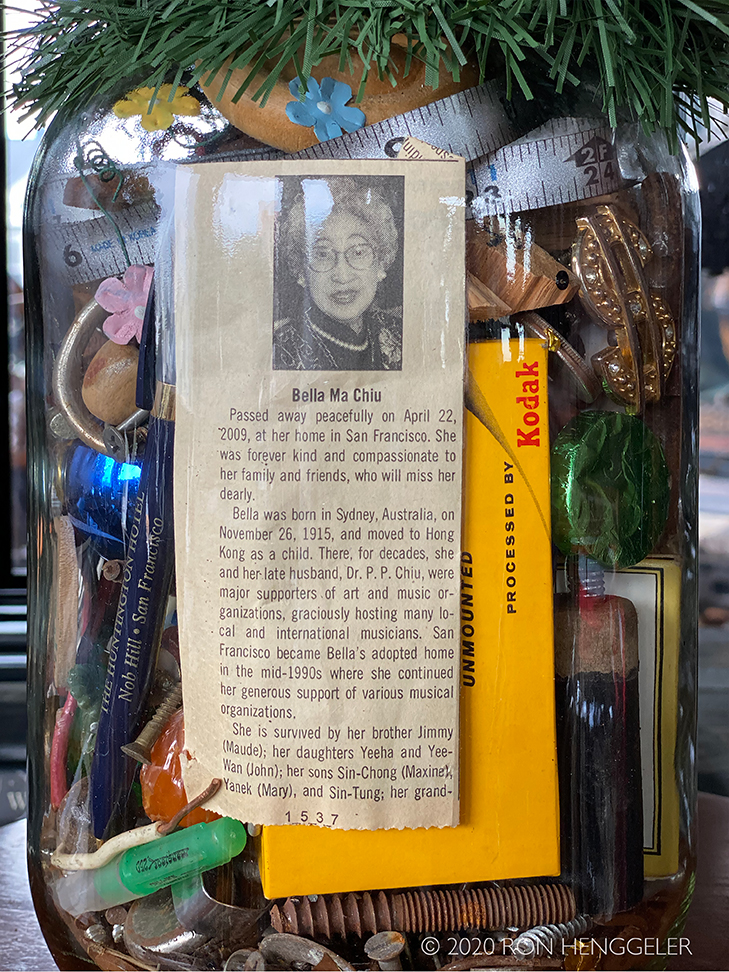 23
24
6
MADE IN KOREA
Bella Ma Chiu
Passed away peacefully on April 22,
2009, at her home in San Francisco. She
was forever kind and compassionate to
her family and friends, who will miss her
dearly.
Bella was born in Sydney, Australia, on
November 26, 1915, and moved to Hong
Kong as a child. There, for decades, she
and her late husband, Dr. P. P. Chiu, were
major supporters of art and music or-
ganizations, graciously hosting many lo-
cal and international musicians. San
Francisco became Bella's adopted home
in the mid-1990s where she continued
her generous support of various musical
organizations.
She is survived by her brother Jimmy
(Maude); her daughters Yeeha and Yee-
Wan (John); her sons Sin-Chong (Maxine),
Yanek (Mary), and Sin-Tung; her grand-
1537
Kodak
PROCESSED BY
UNMOUNTED
THE HUNTINGTON HOTEL
Nob Hill • San Francisco
© 2020 RON HENGGELER